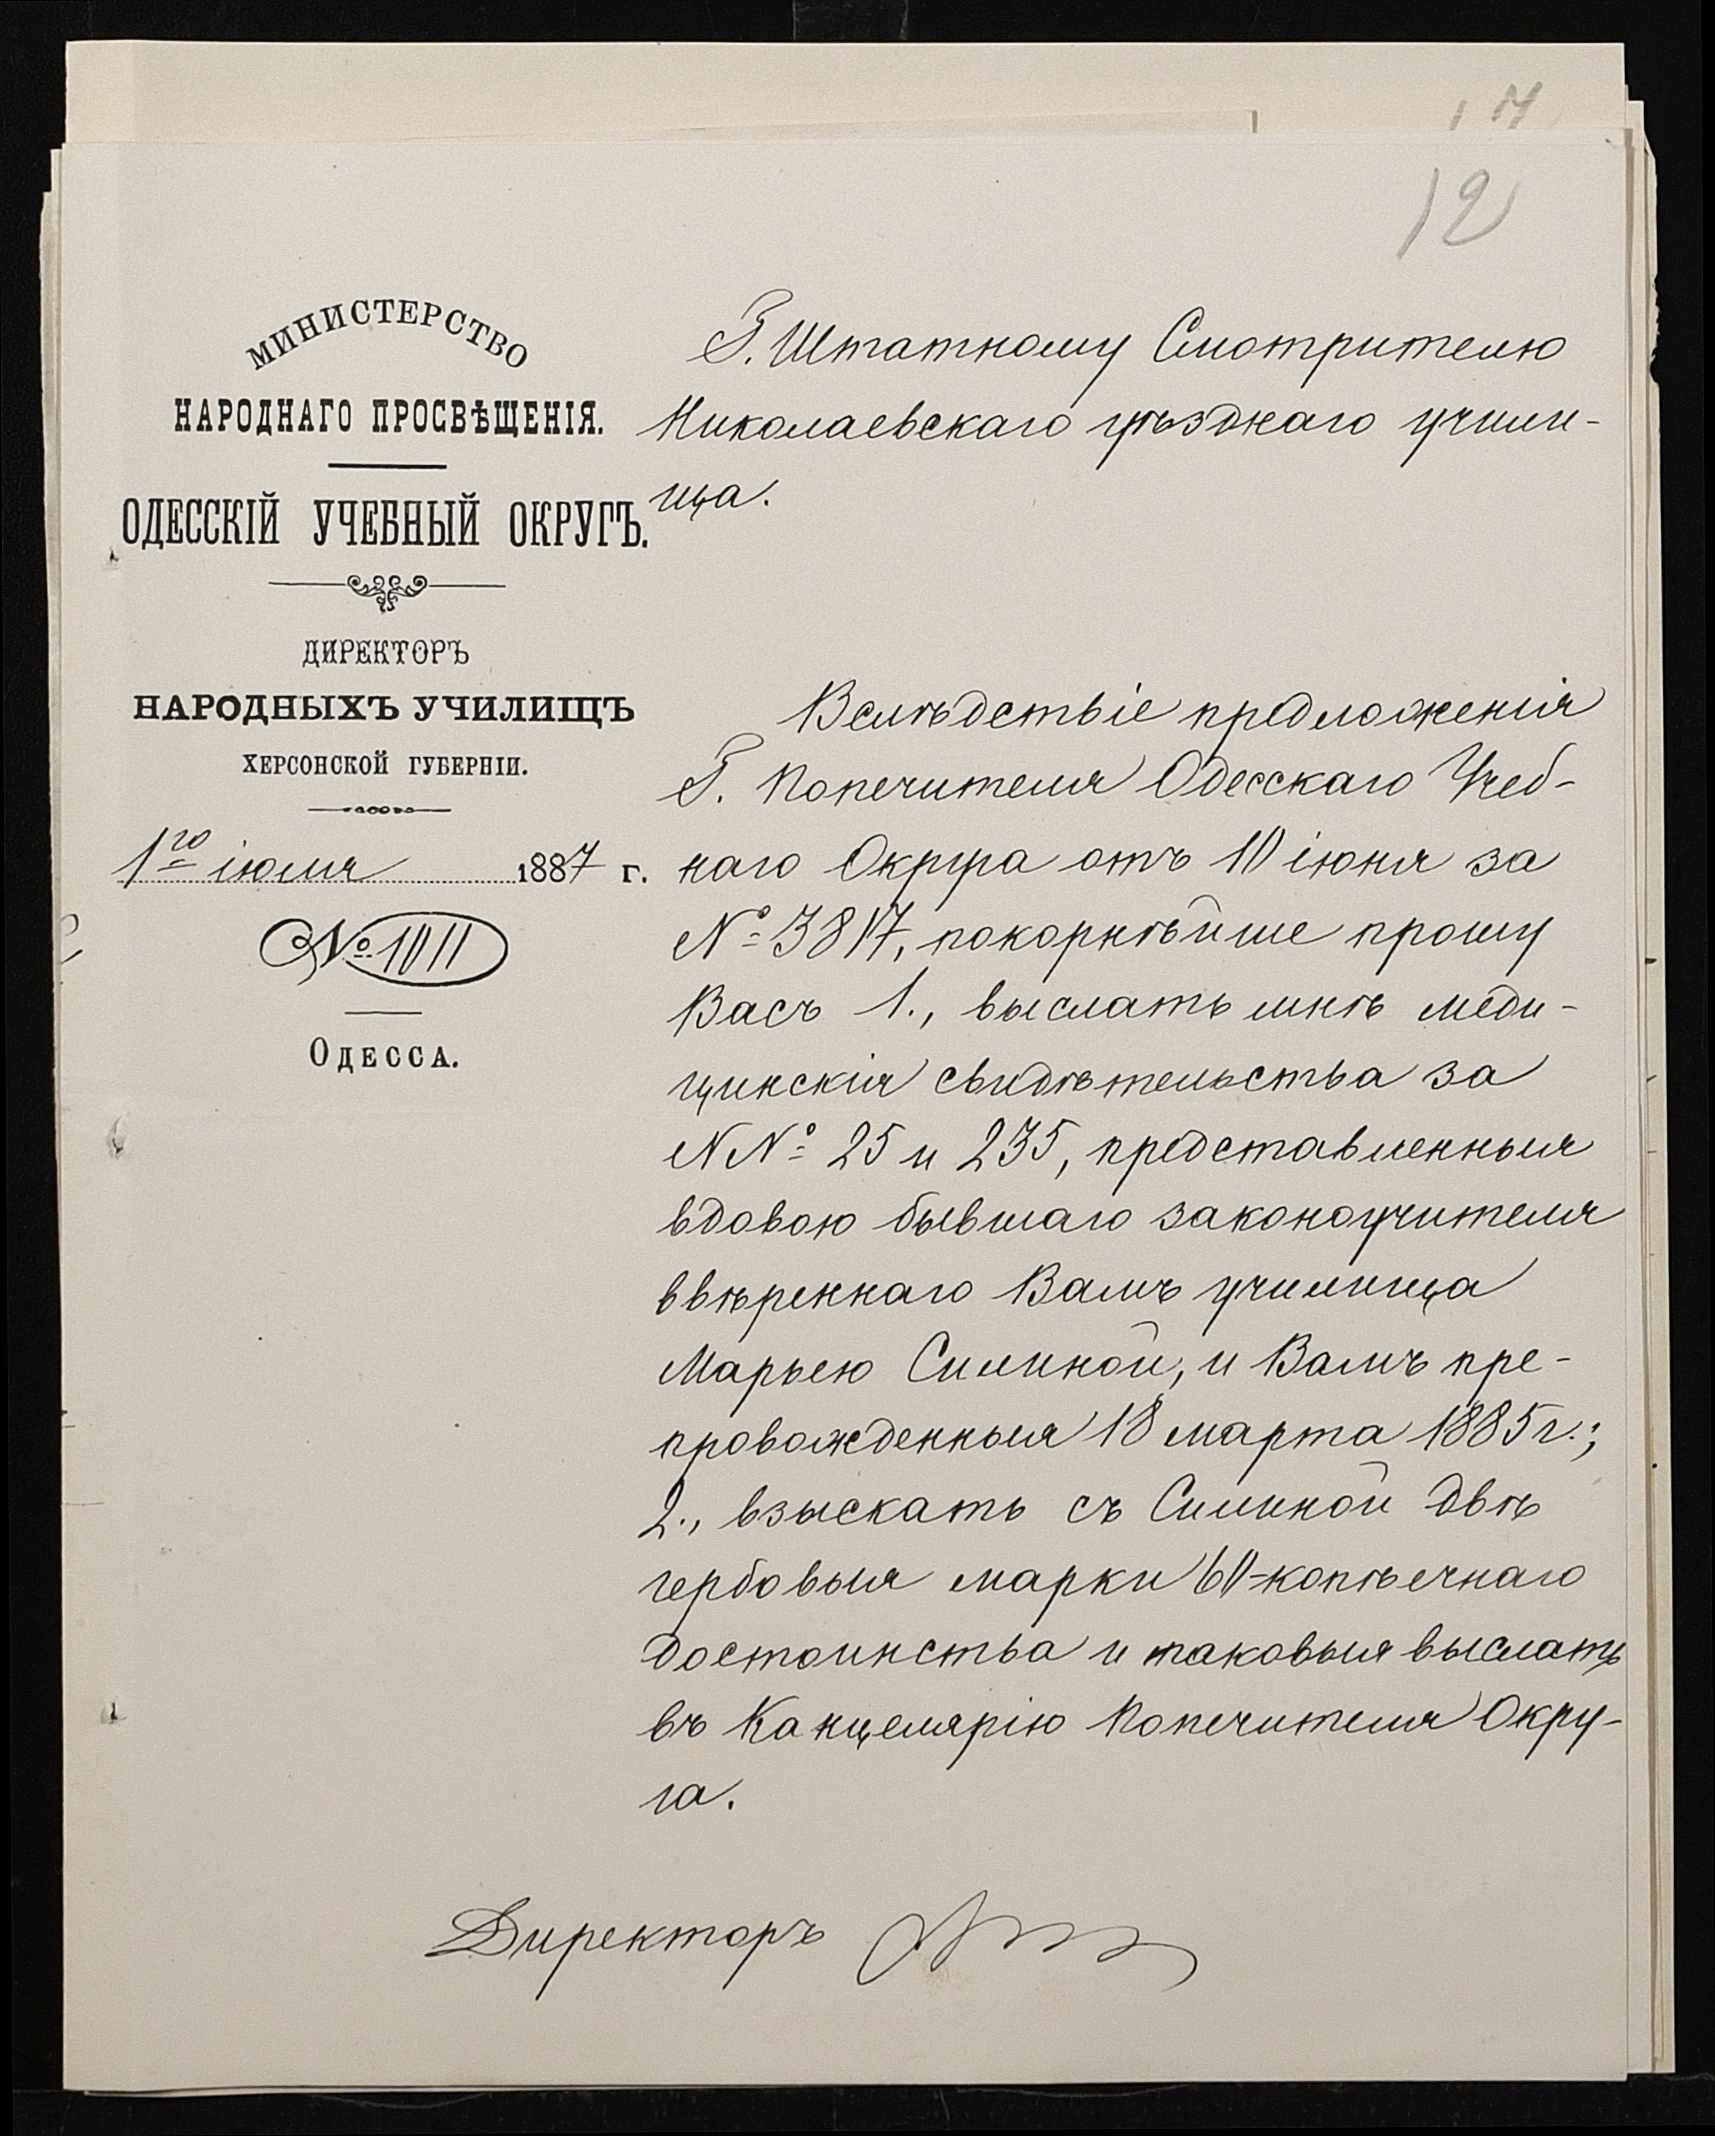 12
МИНИСТЕРСТВО
НАРОДНАГО ПРОСВѢЩЕНІЯ.
ОДЕССКІЙ УЧЕБНЫЙ ОКРУГЪ.
ДИРЕКТОРЪ
НАРОДНЫХЪ УЧИЛИЩЪ
ХЕРСОНСКОЙ ГУБЕРНІИ.
1го іюля 1887 г.
№ 1011
ОДЕССА.
Г. Штатному Смотрителю
Николаевскаго уѣзднаго учили-
ща.
Вслѣдствіе предложенія
Г. Попечителя Одесскаго Учеб-
наго Округа отъ 10 іюня за
№ 3817, покорнѣйше прошу
Васъ 1., выслать мнѣ меди-
цинскія свидѣтельства за
NN° 25 и 235, представленныя
вдовою бывшаго законоучителя
ввѣреннаго Вамъ училища
Марьею Силиной, и Вамъ пре-
провожденныя 18 марта 1885 г.;
2., взыскать съ Силиной двѣ
гербовыя марки 60-копѣечнаго
достоинства и таковыя выслать
въ Канцелярію Попечителя Окру-
га.
Директоръ